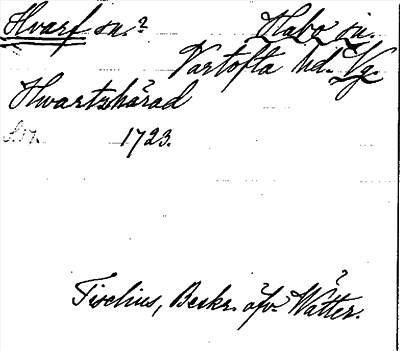 Hvarf sn.? Habo sn.
Vartofta hd. Vg.
Hwartzhärad
1723.
Tiselius, Beskr. öfv. Wätter.